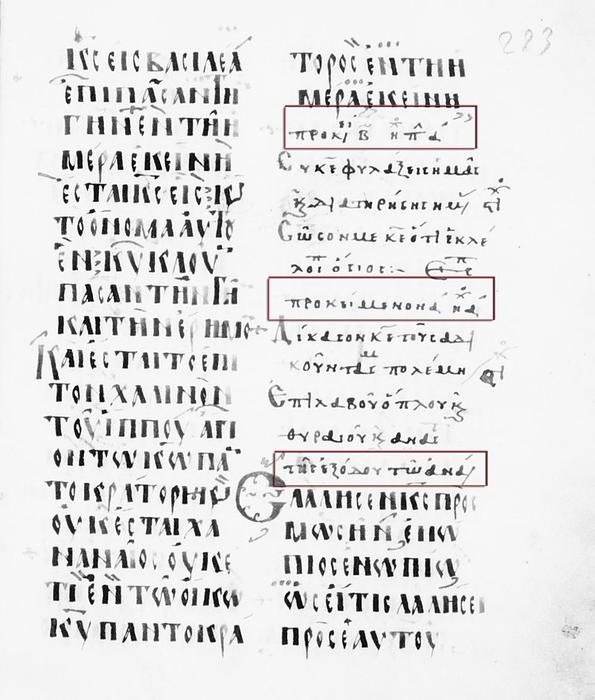 ΚΣ ΕΙΣ ΒΑΣΙΛΕΑ
ΕΠΙ ΠΑΣΑΝ ΤΗ
ΓΗΝ ΕΝ ΤΗ Η
ΜΕΡΑ ΕΚΕΙΝΗ
ΕΣΤΑΙ ΚΣ ΕΙΣ Κ
ΤΟ ΟΝΟΜΑ ΑΥΤΟΥ
ΕΝ ΚΥΚΛΟΥ
ΠΑΣΑΝ ΤΗΝ ΓΗ
ΚΑΙ ΤΗΝ ΕΡΗΜΟ
ΚΑΙ ΕΣΤΑΙ ΤΟ ΕΠΙ
ΤΟΝ ΧΑΛΙΝΟΝ
ΤΟΥ ΙΠΠΟΥ ΑΓΙ
ΟΝ ΤΩ ΚΩ ΠΑ
ΤΟΚΡΑΤΟΡΙ Κ
ΟΥΚ ΕΣΤΑΙ ΧΑ
ΝΑΝΑΙΟΣ ΟΥΚΕ
ΤΙ ΕΝ ΤΩ ΟΙΚΩ
ΚΥ ΠΑΝΤΟΚΡΑ
ΤΟΡΟΣ ΕΝ ΤΗ Η
ΜΕΡΑ ΕΚΕΙΝΗ
προκει β ηχ πλ α
Συ κε φυλαξεις ημας
κ διατηρησεις ημ
Σωσον με κε οτι εκλε
λοιπ οσιος
προκειμενον ηχ α
Δικασον κε τους αδι
κουντας με πολεμη
Επιλαβου οπλου κ
θυραιου κ ανας
της εξοδου το ανα
ΕΛΑΛΗΣΕΝ ΚΣ ΠΡΟΣ
ΜΩΣΗΝ ΕΝΩ
ΠΙΟΣ ΕΝΩΠΙΩ
ΩΣ ΕΙ ΤΙΣ ΛΑΛΗΣΕΙ
ΠΡΟΣ ΕΑΥΤΟΥ